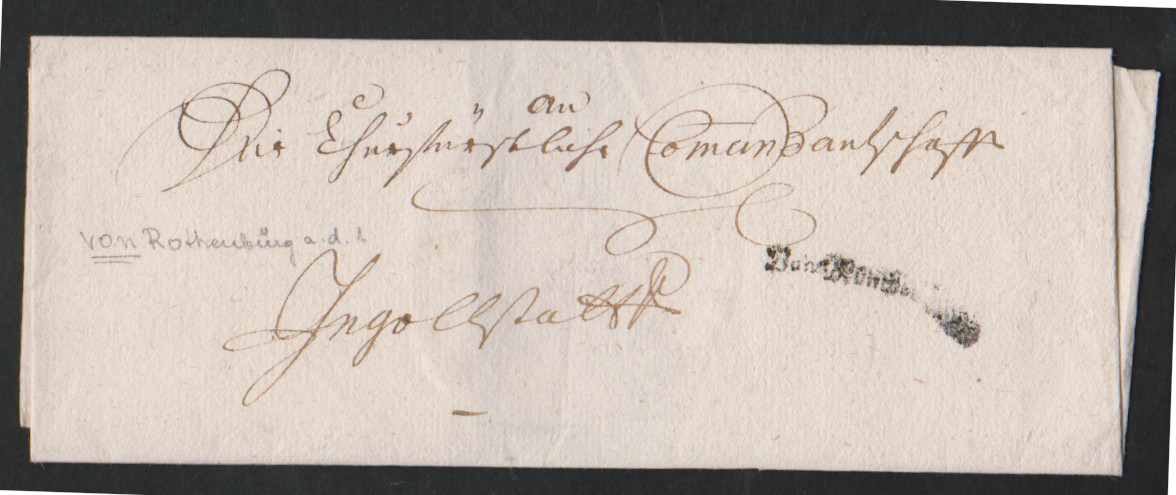 an
Die Churfürstliche Comandantschafft
von Rothenburg a. d.
Ingollstatt
Von